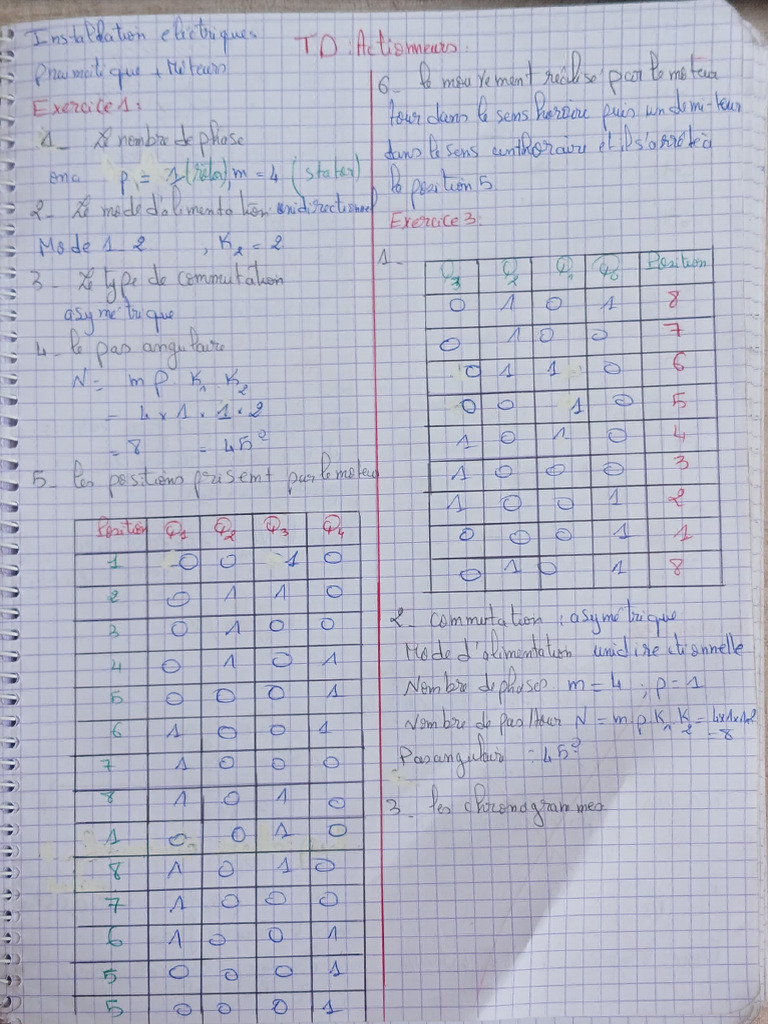 Installation electriques
TD : Actionneurs
Pneumatique + Moteurs
Exercice 1 :
1_ Le nombre de phase
ona p = 1 (rotor), m = 4 (stator)
2_ Le mode d'alimentation unidirectionnel
Mode 1_2 , K2 = 2
3_ Le type de commutation
asymétrique
4_ le pas angulaire
N = m p K1 K2
= 4 x 1 x 1 x 2
= 8 = 45°
5_ les positions prisent par le moteur
Position Φ1 Φ2 Φ3 Φ4
1 0 0 1 0
2 0 1 1 0
3 0 1 0 0
4 0 1 0 1
5 0 0 0 1
6 1 0 0 1
7 1 0 0 0
8 1 0 1 0
1 0 0 1 0
8 1 0 1 0
7 1 0 0 0
6 1 0 0 1
5 0 0 0 1
5 0 0 0 1
6_ le mouvement réalisé par le moteur
tour dans le sens horaire puis un demi-tour
dans le sens antihoraire et il s'arrête à
la position 5
Exercice 3 :
1_
Φ3 Φ2 Φ1 Φ0 Position
0 1 0 1 8
0 1 0 0 7
0 1 1 0 6
0 0 1 0 5
1 0 1 0 4
1 0 0 0 3
1 0 0 1 2
0 0 0 1 1
0 1 0 1 8
2_ commutation : asymétrique
Mode d'alimentation unidirectionnelle
Nombre de phases m = 4 ; p = 1
Nombre de pas/tour N = m p K1 K2 = 4x1x1x2
= 8
Pas angulair = 45°
3_ les chronogrammes